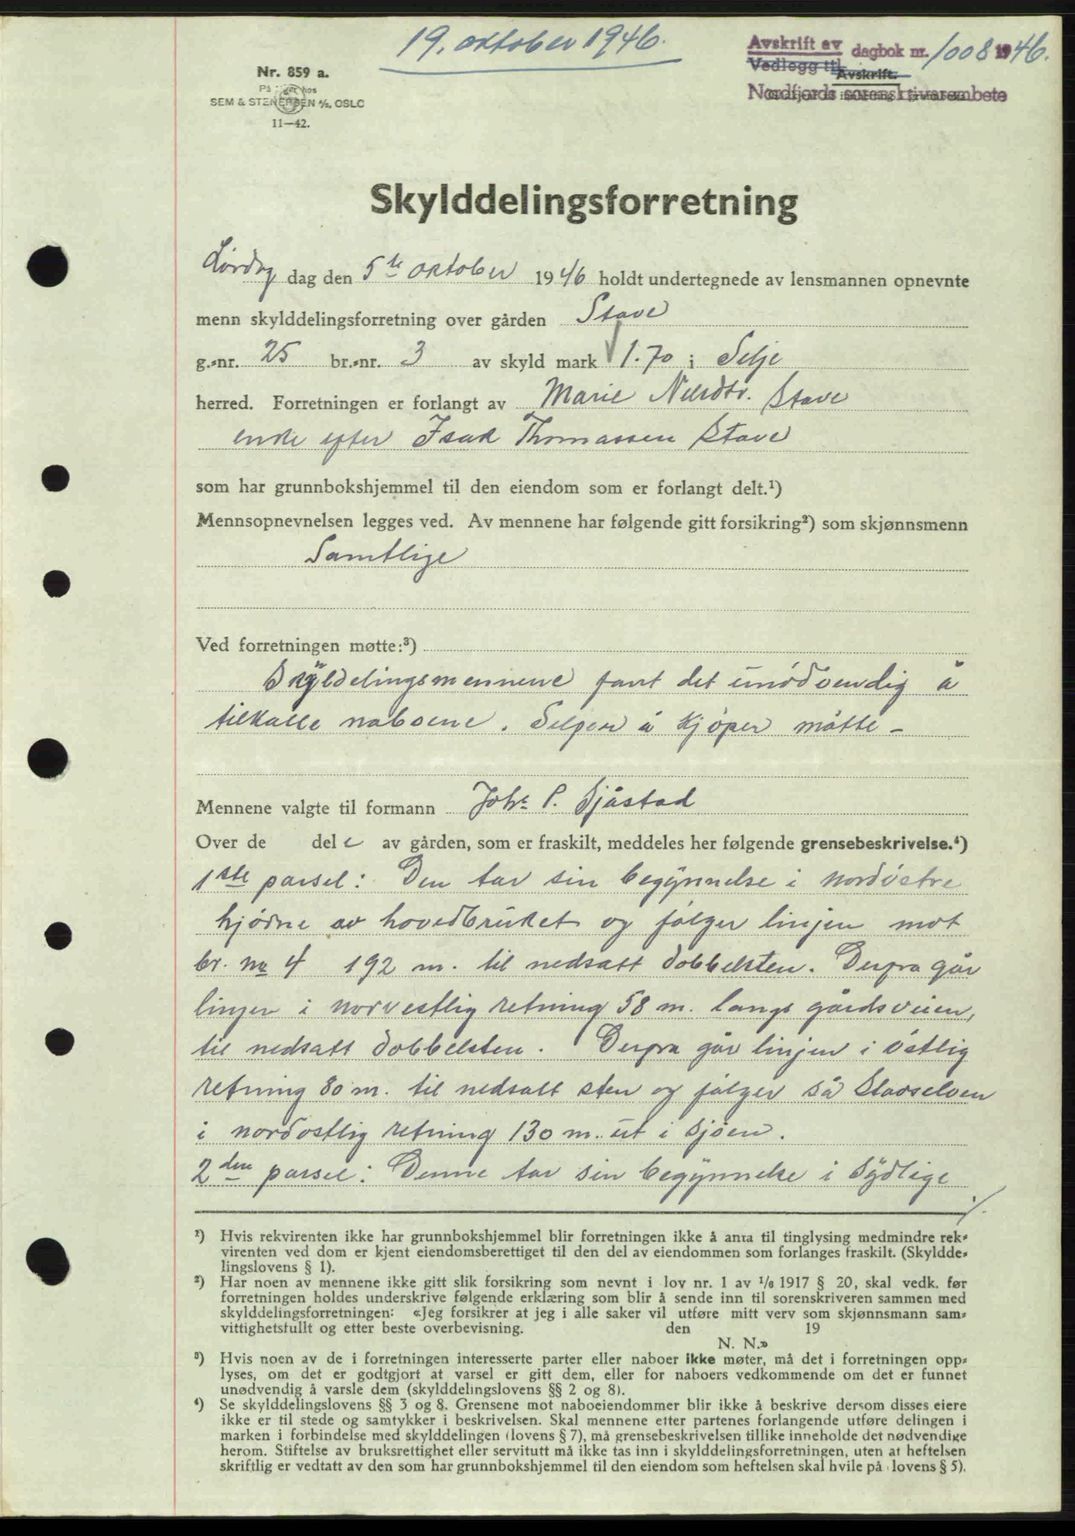 19. oktober 1946.
Avskrift av dagbok nr. 1008 1946.
Vedlegg til
Avskrift.
Nordfjords sorenskriverembete
Nr. 859 a.
SEM & STENERSEN A/S, OSLO
11—42.
Skylddelingsforretning
Lørdag dag den 5te oktober 1946 holdt undertegnede av lensmannen opnevnte
menn skylddelingsforretning over gården Stave
g.-nr. 25 br.-nr. 3 av skyld mark 1.70 i Selje
herred. Forretningen er forlangt av Marie Nilsdtr. Stave
enke efter Isak Thomassen Stave
som har grunnbokshjemmel til den eiendom som er forlangt delt.¹)
Mennsopnevnelsen legges ved. Av mennene har følgende gitt forsikring²) som skjønnsmenn
Samtlige
Ved forretningen møtte:³)
Skyldelingsmennene fant det unødvendig å
tilkalle naboene. Selger å Kjøper møtte –
Mennene valgte til formann Johs P. Sjåstad
Over de dele av gården, som er fraskilt, meddeles her følgende grensebeskrivelse.⁴)
1ste parsel: Den tar sin begynnelse i nordvstre
hjørne av hovedbruket og følger linjen mot
br. no 4 192 m. til nedsatt dobbelsten. Derfra går
linjen i norvestlig retning 58 m. langs gårdsveien,
til nedsatt dobbelsten. Derfra går linjen i østlig
retning 80 m. til nedsatt sten og følger så Stavselven
i nordostlig retning 130 m. ut i sjøen.
2den parsel: Denne tar sin begynnelse i Sydlige
./.
¹) Hvis rekvirenten ikke har grunnbokshjemmel blir forretningen ikke å anta til tinglysing medmindre rek-
virenten ved dom er kjent eiendomsberettiget til den del av eiendommen som forlanges fraskilt. (Skyldde-
lingslovens § 1).
²) Har noen av mennene ikke gitt slik forsikring som nevnt i lov nr. 1 av ¹/₆ 1917 § 20, skal vedk. før
forretningen holdes underskrive følgende erklæring som blir å sende inn til sorenskriveren sammen med
skylddelingsforretningen: «Jeg forsikrer at jeg i alle saker vil utføre mitt verv som skjønnsmann sam-
vittighetsfullt og etter beste overbevisning. den 19
N. N.»
³) Hvis noen av de i forretningen interesserte parter eller naboer ikke møter, må det i forretningen opp-
lyses, om det er godtgjort at varsel er gitt dem, eller for naboers vedkommende om det er funnet
unødvendig å varsle dem (skylddelingslovens §§ 2 og 8).
⁴) Se skylddelingslovens §§ 3 og 8. Grensene mot naboeiendommer blir ikke å beskrive dersom disses eiere
ikke er til stede og samtykker i beskrivelsen. Skal mennene etter partenes forlangende utføre delingen i
marken i forbindelse med skylddelingen (lovens § 7), må grensebeskrivelsen tillike inneholde det nødvendige
herom. Stiftelse av bruksrettighet eller servitutt må ikke tas inn i skylddelingsforretningen, uten at heftelsen
skriftlig er vedtatt av den som har grunnbokshjemmel til den eiendom som heftelsen skal hvile på (lovens § 5).